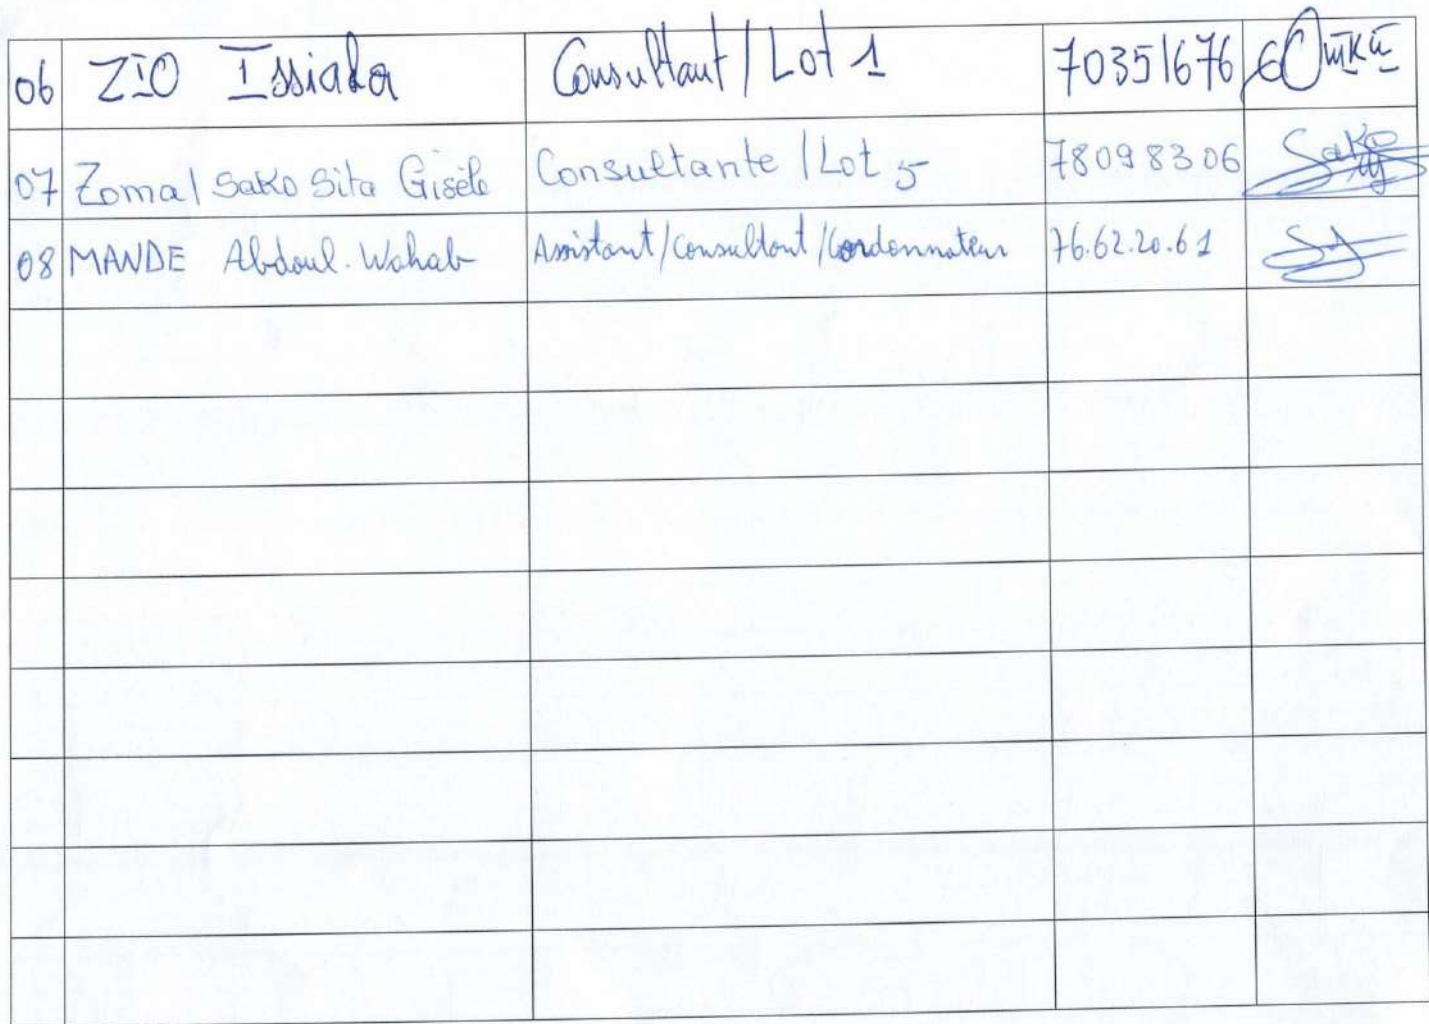 06 ZIO Issiaka Consultant / Lot 1 70351676
07 Zomal Sako Sita Gisèle Consultante / Lot 5 78098306 Sako
08 MANDE Abdoul-Wahab Assistant/Consultant/Cordonnateur 76.62.20.61